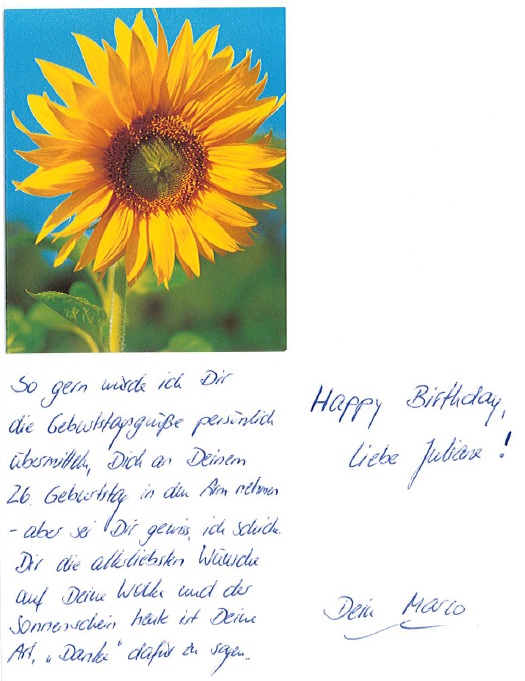 So gern würde ich Dir
die Geburtstagsgrüße persönlich
übermitteln, Dich an Deinem
26. Geburtstag in den Arm nehmen
- aber sei Dir gewiss, ich schicke
Dir die allerliebsten Wünsche
auf Deine Wolke und der
Sonnenschein heute ist Deine
Art, "Danke" dafür zu sagen.
Happy Birthday,
liebe Juliane!
Dein Marco